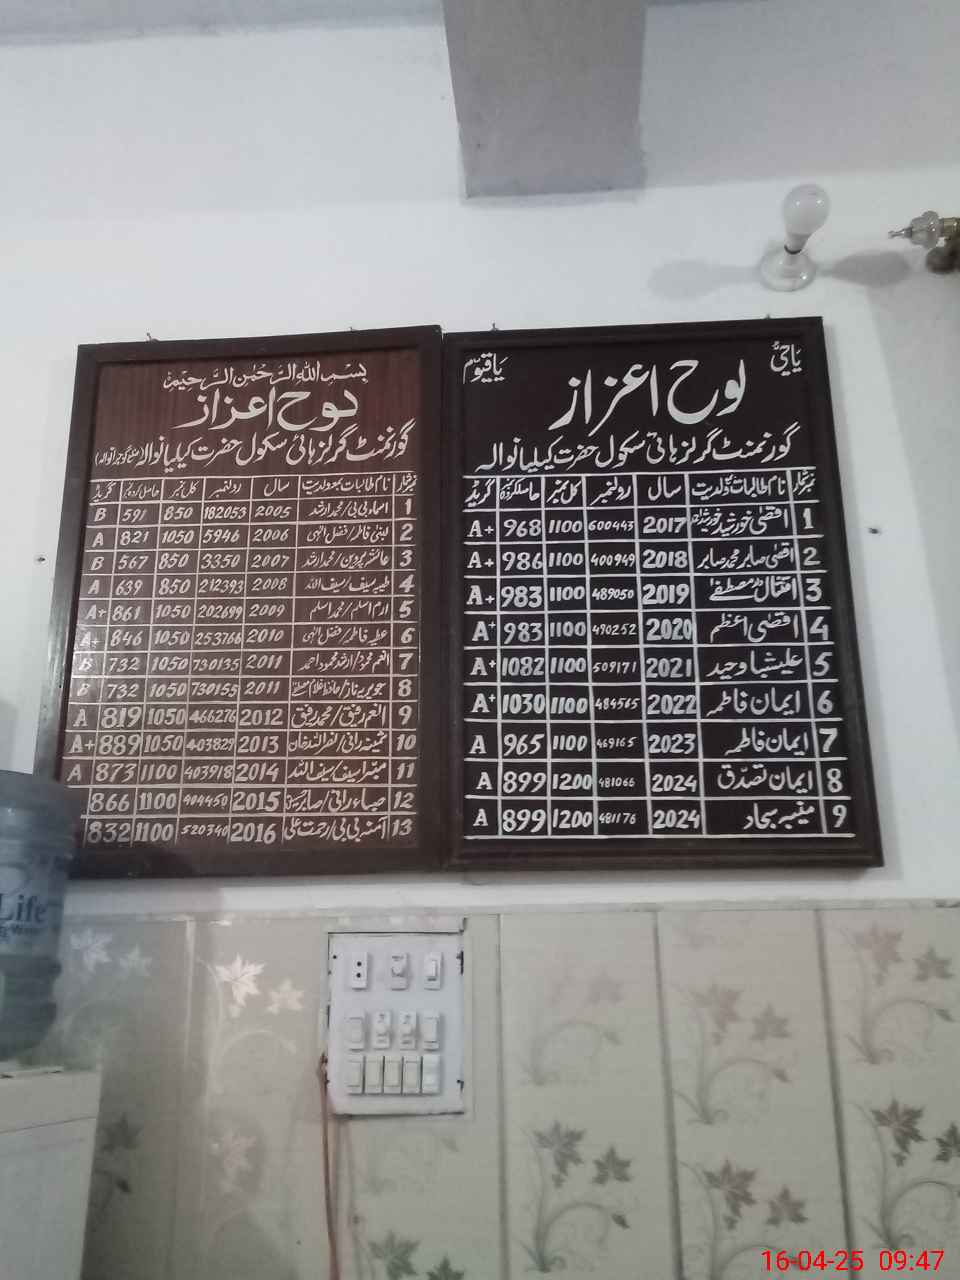 بسم اللہ الرحمٰن الرحیم
لوح اعزاز
گورنمنٹ گرلز ہائی سکول حضرت کیلیانوالا (ضلع گوجرانوالہ)
نمبر شمار نام طالبات بمعہ ولدیت سال رولنمبر کل نمبر حاصل کردہ نمبر گریڈ
1 اسماء بی بی/محمد ارشد 2005 182053 850 591 B
2 لبنیٰ فاطمہ/فضل الٰہی 2006 5946 1050 821 A
3 عائشہ پروین/محمد ارشد 2007 3350 850 567 B
4 طیبہ سیف/سیف اللہ 2008 212393 850 639 A
5 ارم اسلم/محمد اسلم 2009 202699 1050 861 A+
6 عطیہ فاطمہ/فضل الٰہی 2010 253768 1050 846 A+
7 انعم محمود/ارشد محمود احمد 2011 730135 1050 732 B
8 جویریہ ناز/حافظ غلام مصطفےٰ 2011 730155 1050 732 B
9 انعم رفیق/محمد رفیق 2012 466276 1050 819 A
10 ثمینہ رانی/نصر اللہ خان 2013 403829 1050 889 A+
11 سیف/سیف اللہ 2014 403918 1100 873 A
12 صباء رانی/صابر حسین 2015 404450 1100 866
13 آمنہ بی بی/رحمت علی 2016 520340 1100 832
یاحیُّ
یاقیوم
لوح اعزاز
گورنمنٹ گرلز ہائی سکول حضرت کیلیانوالہ
نمبر شمار نام طالبات بمعہ ولدیت سال رولنمبر کل نمبر حاصلکردہ نمبر گریڈ
1 اقصیٰ خورشید 2017 600443 1100 968 A+
2 اقصٰی صابر محمد صابر 2018 400949 1100 986 A+
3 مصطفےٰ 2019 489050 1100 983 A+
4 اقصٰی اعظم 2020 490252 1100 983 A+
5 علیشبا وحید 2021 509171 1100 1082 A+
6 ایمان فاطمہ 2022 484565 1100 1030 A+
7 ایمان فاطمہ 2023 469165 1100 965 A
8 ایمان تصدّق 2024 481066 1200 899 A
9 منیبہ سجاد 2024 481176 1200 899 A
Life
16-04-25 09:47